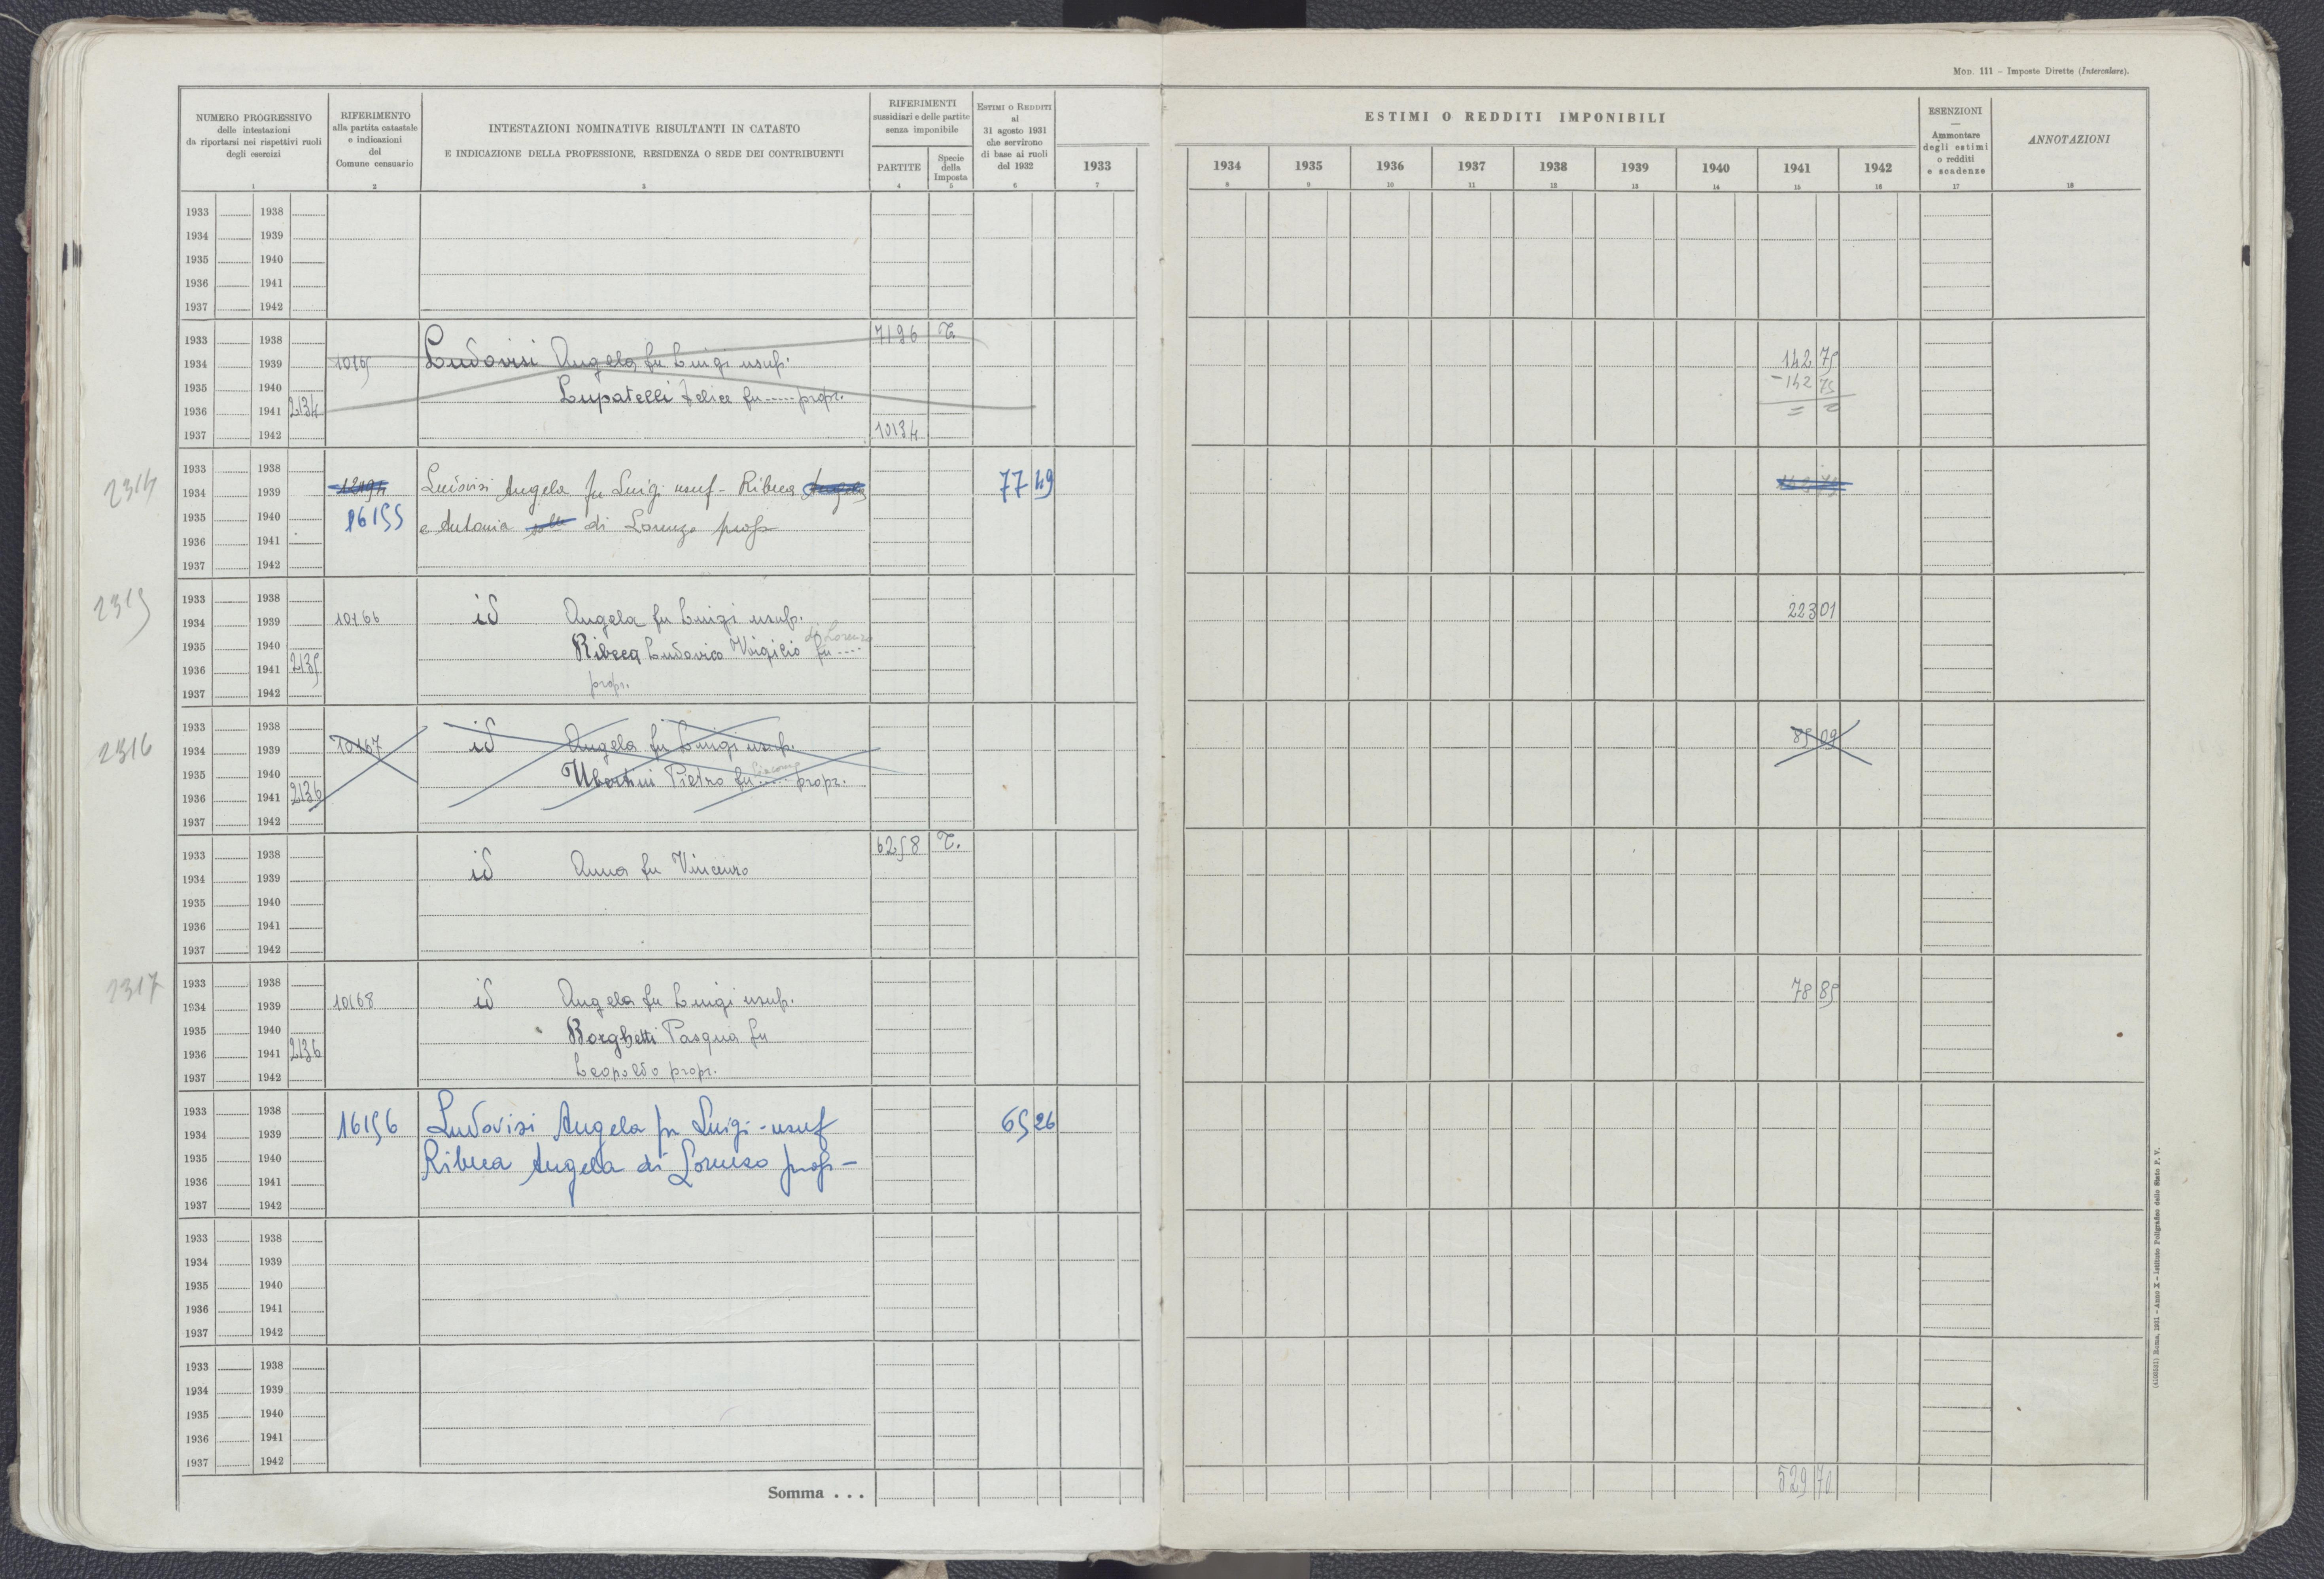 Mod. 111 – Imposte Dirette (Intercalare).
NUMERO PROGRESSIVO
delle intestazioni
da riportarsi nei rispettivi ruoli
degli esercizi
1
RIFERIMENTO
alla partita catastale
e indicazioni
del
Comune censuario
2
INTESTAZIONI NOMINATIVE RISULTANTI IN CATASTO
E INDICAZIONE DELLA PROFESSIONE, RESIDENZA O SEDE DEI CONTRIBUENTI
3
RIFERIMENTI
sussidiari e delle partite
senza imponibile
PARTITE
4
Specie
della
Imposta
5
Estimi o Redditi
al
31 agosto 1931
che servirono
di base ai ruoli
del 1932
6
ESTIMI O REDDITI IMPONIBILI
1933 1934 1935 1936 1937 1938 1939 1940 1941 1942
7 8 9 10 11 12 13 14 15 16
ESENZIONI
—
Ammontare
degli estimi
o redditi
e scadenze
17
ANNOTAZIONI
18
1933 1938
1934 1939
1935 1940
1936 1941
1937 1942
1933 1938 7196 T.
1934 1939 Ludovisi Angela fu Luigi usuf. 142 75
1935 1940 Lupatelli Felice fu ----- propr. -142 75
1936 1941 2134 = =
1937 1942 10134
1933 1938
2314 1934 1939 12194 Ludovisi Angela fu Luigi usuf - Ribeca Angela 77 49
1935 1940 16155 e Antonia di Lorenzo prop
1936 1941
1937 1942
1933 1938
2315 1934 1939 10166 id Angela fu Luigi usuf. 223 01
di Lorenzo
1935 1940 Ribeca Ludovico Virgilio fu ----
1936 1941 2135
1937 1942 propr.
1933 1938
2316 1934 1939 10167 id Angela fu Luigi usuf. 85 09
Giacomo
1935 1940 Ubertini Pietro fu ---- propr.
1936 1941 2136
1937 1942
1933 1938 6258 T.
1934 1939 id Anna fu Vincenzo
1935 1940
1936 1941
1937 1942
1933 1938
2317 1934 1939 10168 id Angela fu Luigi usuf. 78 85
1935 1940 Borghetti Pasqua fu
1936 1941 2136
1937 1942 Leopoldo propr.
1933 1938
1934 1939 16156 Ludovisi Angela fu Luigi - usuf 65 26
1935 1940 Ribeca Angela di Lorenzo prop –
1936 1941
1937 1942
1933 1938
1934 1939
1935 1940
1936 1941
1937 1942
1933 1938
1934 1939
1935 1940
1936 1941
1937 1942
Somma . . . 529 70
Roma, 1931 – Anno X – Istituto Poligrafico dello Stato P. V.